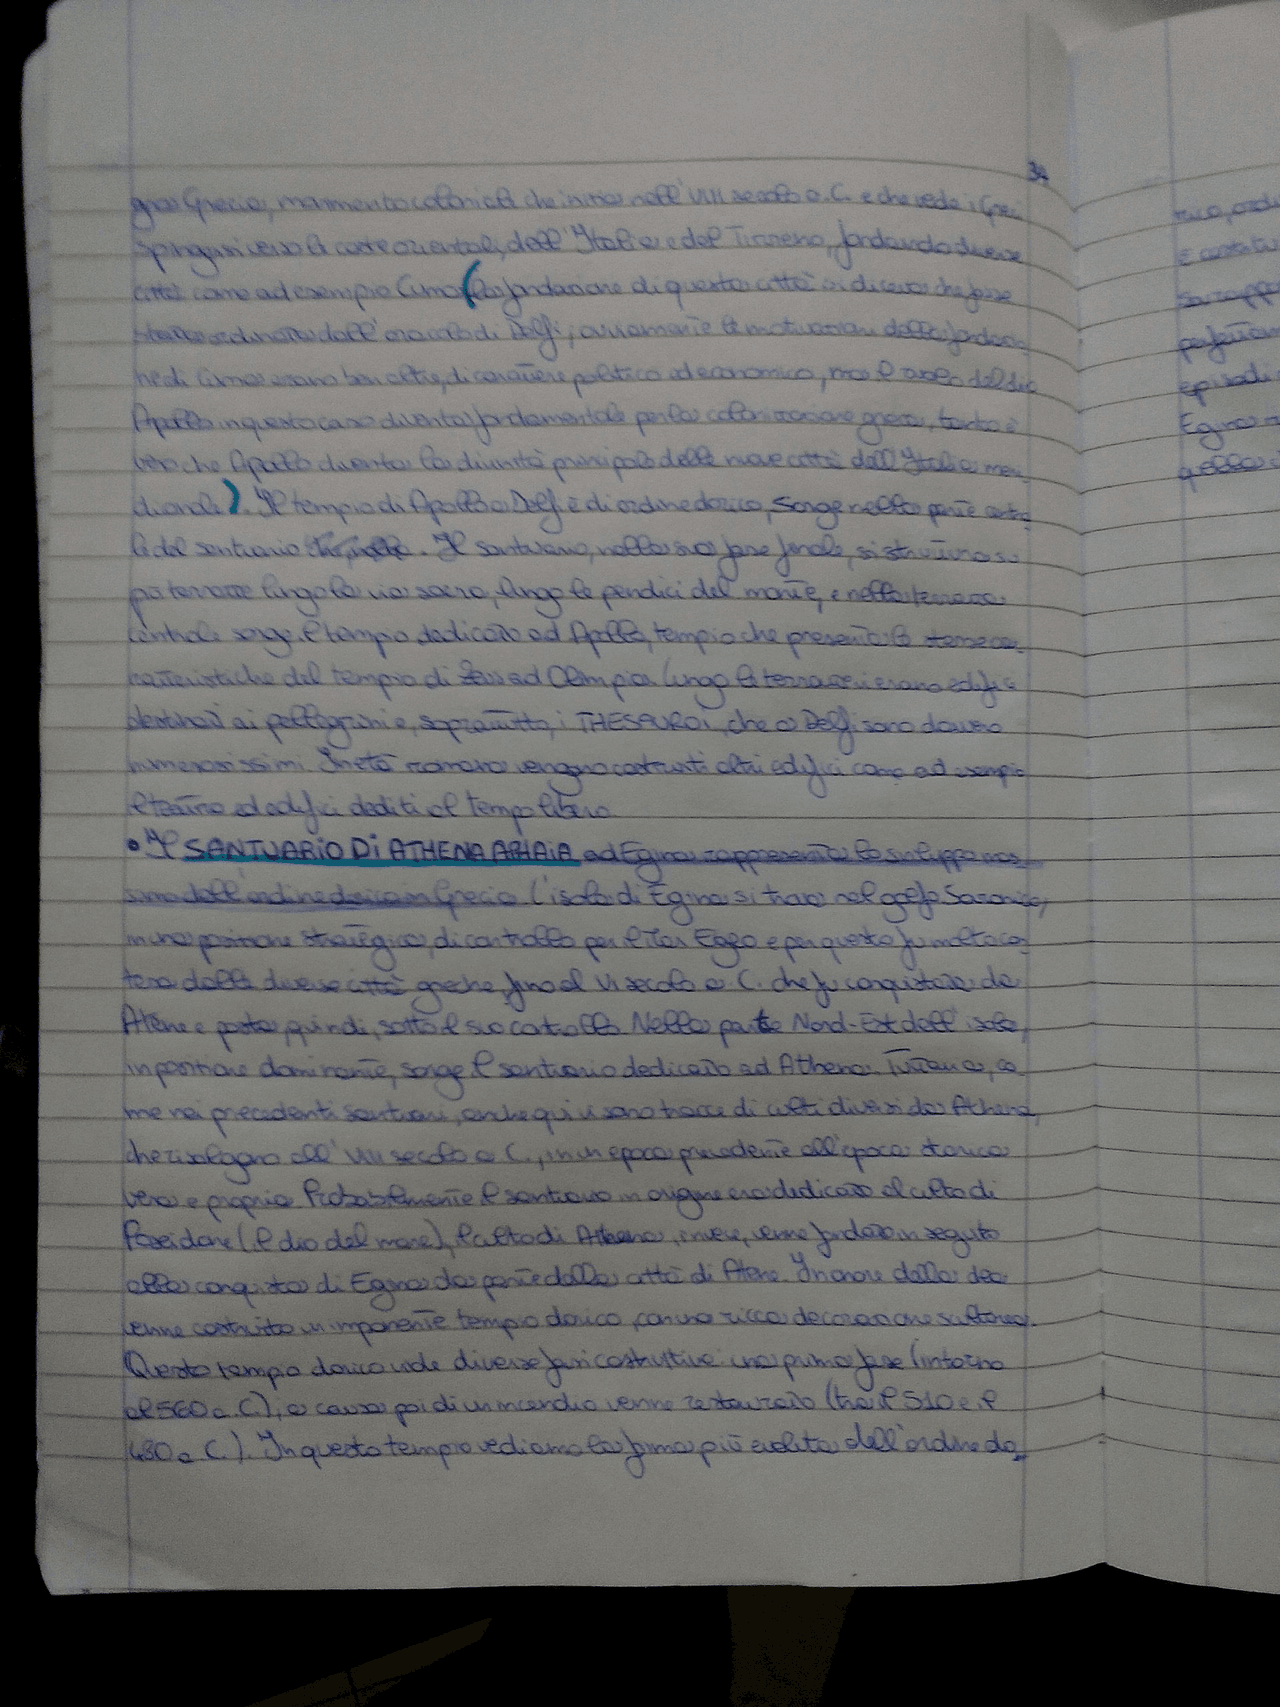 34
gna Grecia, movimento coloniale che inizia nell'VIII secolo a.C. e che vede i Greci
spingersi verso le coste orientali, dell'Italia e del Tirreno, fondando diverse
città come ad esempio Cuma (la fondazione di questa città si diceva che fosse
stata ordinata dall'oracolo di Delfi; ovviamente le motivazioni della fondazio
ne di Cuma erano ben altre, di carattere politico ed economico, ma il ruolo del dio
Apollo in questo caso diventa fondamentale per la colonizzazione greca, tanto è
vero che Apollo diventa la divinità principale delle nuove città dell'Italia meri
dionale). Il tempio di Apollo a Delfi è di ordine dorico, sorge nella parte centra
le del santuario. Il santuario, nella sua fase finale, si struttura su
più terrazze lungo la via sacra, lungo le pendici del monte, e nella terrazza
centrale sorge il tempio dedicato ad Apollo, tempio che presenta le stesse ca
ratteristiche del tempio di Zeus ad Olimpia. Lungo le terrazze vi erano edifici
destinati ai pellegrini e, soprattutto, i THESAUROI, che a Delfi sono davvero
numerosissimi. In età romana vengono costruiti altri edifici come ad esempio
il teatro ed edifici dediti al tempo libero.
• Il SANTUARIO DI ATHENA APHAIA ad Egina rappresenta lo sviluppo mas
simo dell'ordine dorico in Grecia. L'isola di Egina si trova nel golfo Saronico,
in una posizione strategica, di controllo per il Mar Egeo e per questo fu molto con
tesa dalle diverse città greche, fino al VI secolo a.C. che fu conquistata da
Atene e posta, quindi, sotto il suo controllo. Nella parte Nord-Est dell'isola,
in posizione dominante, sorge il santuario dedicato ad Athena. Tuttavia, co
me nei precedenti santuari, anche qui vi sono tracce di culti diversi da Athena,
che risalgono all'VIII secolo a.C., in un'epoca precedente all'epoca storica
vera e propria. Probabilmente il santuario in origine era dedicato al culto di
Poseidone (il dio del mare), il culto di Athena, invece, venne fondato in seguito
alla conquista di Egina da parte della città di Atene. In onore della dea
venne costruito un imponente tempio dorico, con una ricca decorazione scultorea.
Questo tempio dorico vide diverse fasi costruttive: una prima fase (intorno
al 560 a.C.), a causa poi di un incendio venne restaurato (tra il 510 e il
480 a.C.). In questo tempio vediamo la forma più evoluta dell'ordine do